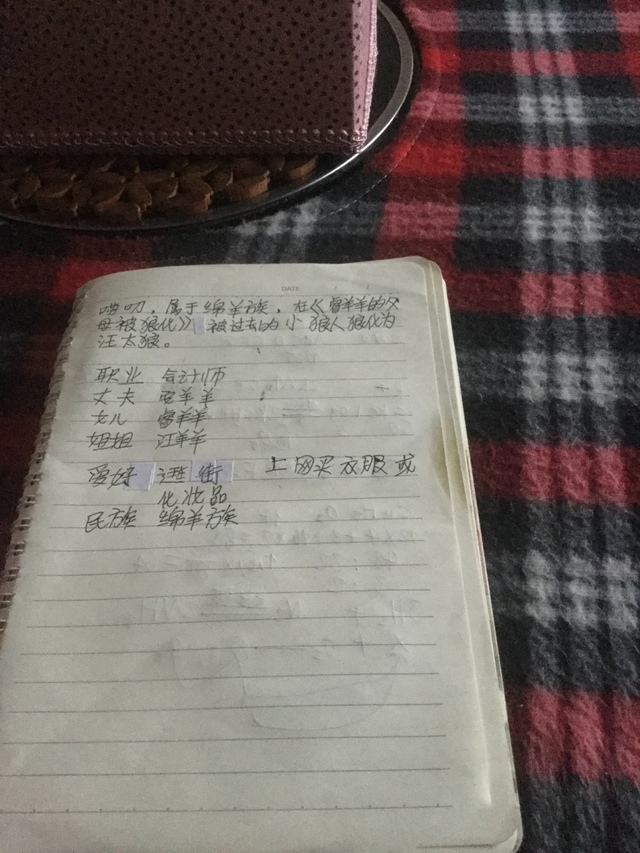 DATE
唠叨，属于绵羊族，在《睿羊羊的父
母被狼化》被过去的小狼人狼化为
汪太狼。
职业 会计师
丈夫 羊羊
女儿 睿羊羊
姐姐 汪羊羊
爱好 逛街 上网买衣服或
化妆品
民族 绵羊族